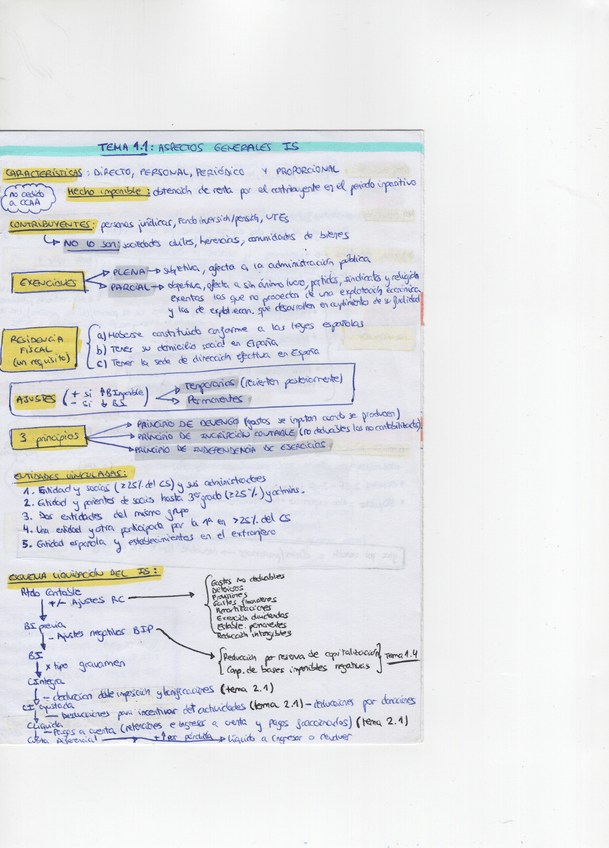 TEMA 1.1: ASPECTOS GENERALES IS
CARACTERÍSTICAS: DIRECTO, PERSONAL, PERIÓDICO Y PROPORCIONAL
no cedido a CCAA
Hecho imponible: obtención de renta por el contribuyente en el periodo impositivo
CONTRIBUYENTES: personas jurídicas, Fondo inversión/pensión, UTEs
NO LO SON: sociedades civiles, herencias, comunidades de bienes
EXENCIONES
PLENA → subjetiva, afecta a la administración pública
PARCIAL → objetiva, afecta a sin ánimo lucro, partidos, sindicatos y religiosas
exentas las que no proceda de una explotación económica
y las de explot. econ. que desarrollen en cumplimiento de su finalidad
RESIDENCIA FISCAL (un requisito)
a) Haberse constituido conforme a las leyes españolas
b) Tener su domicilio social en España
c) Tener la sede de dirección efectiva en España
AJUSTES (+ si ↑ BImponible) (- si ↓ BI)
Temporarios (revierten posteriormente)
Permanentes
3 principios
PRINCIPIO DE DEVENGO (gastos se imputan cuando se producen)
PRINCIPIO DE INSCRIPCIÓN CONTABLE (no deducibles los no contabilizados)
PRINCIPIO DE INDEPENDENCIA DE EJERCICIOS
ENTIDADES VINCULADAS:
1. Entidad y socios (≥25% del CS) y sus administradores
2. Entidad y parientes de socios hasta 3º grado (≥25%) y admins.
3. Dos entidades del mismo grupo
4. Una entidad y otra participada por la 1ª en >25% del CS
5. Entidad española y establecimientos en el extranjero
ESQUEMA LIQUIDACIÓN DEL IS:
Rtdo Contable
+/- Ajustes RC
Gastos no deducibles
Deterioros
Provisiones
Gastos financieros
Amortizaciones
Exención dividendos
Estable. permanentes
Reducción intangibles
BI previa
- Ajustes negativos BIP
Reducción por reserva de capitalización
Comp. de bases imponibles negativas
Tema 1.4
BI
x tipo gravamen
CÍntegra
- deducción doble imposición y bonificaciones (tema 2.1)
CI ajustada
- Deducciones para incentivar det actividades (tema 2.1) - deducciones por donaciones
CLíquida
- Pagos a cuenta (retenciones e ingresos a cuenta y pagos fraccionados) (tema 2.1)
Cuota diferencial → +↑ por pérdida → Líquido a ingresar o devolver